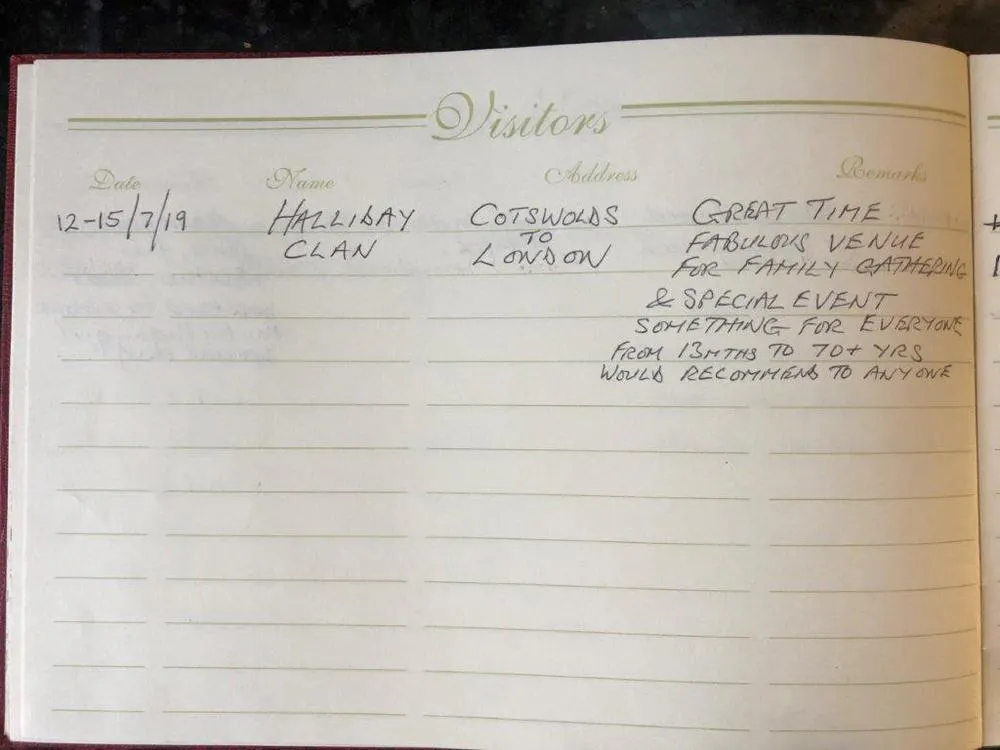 Visitors
Date Name Address Remarks
12-15/7/19 HALLIDAY COTSWOLDS GREAT TIME
CLAN TO FABULOUS VENUE
LONDON FOR FAMILY GATHERING
& SPECIAL EVENT
SOMETHING FOR EVERYONE
FROM 13MTHS TO 70+ YRS
WOULD RECOMMEND TO ANYONE